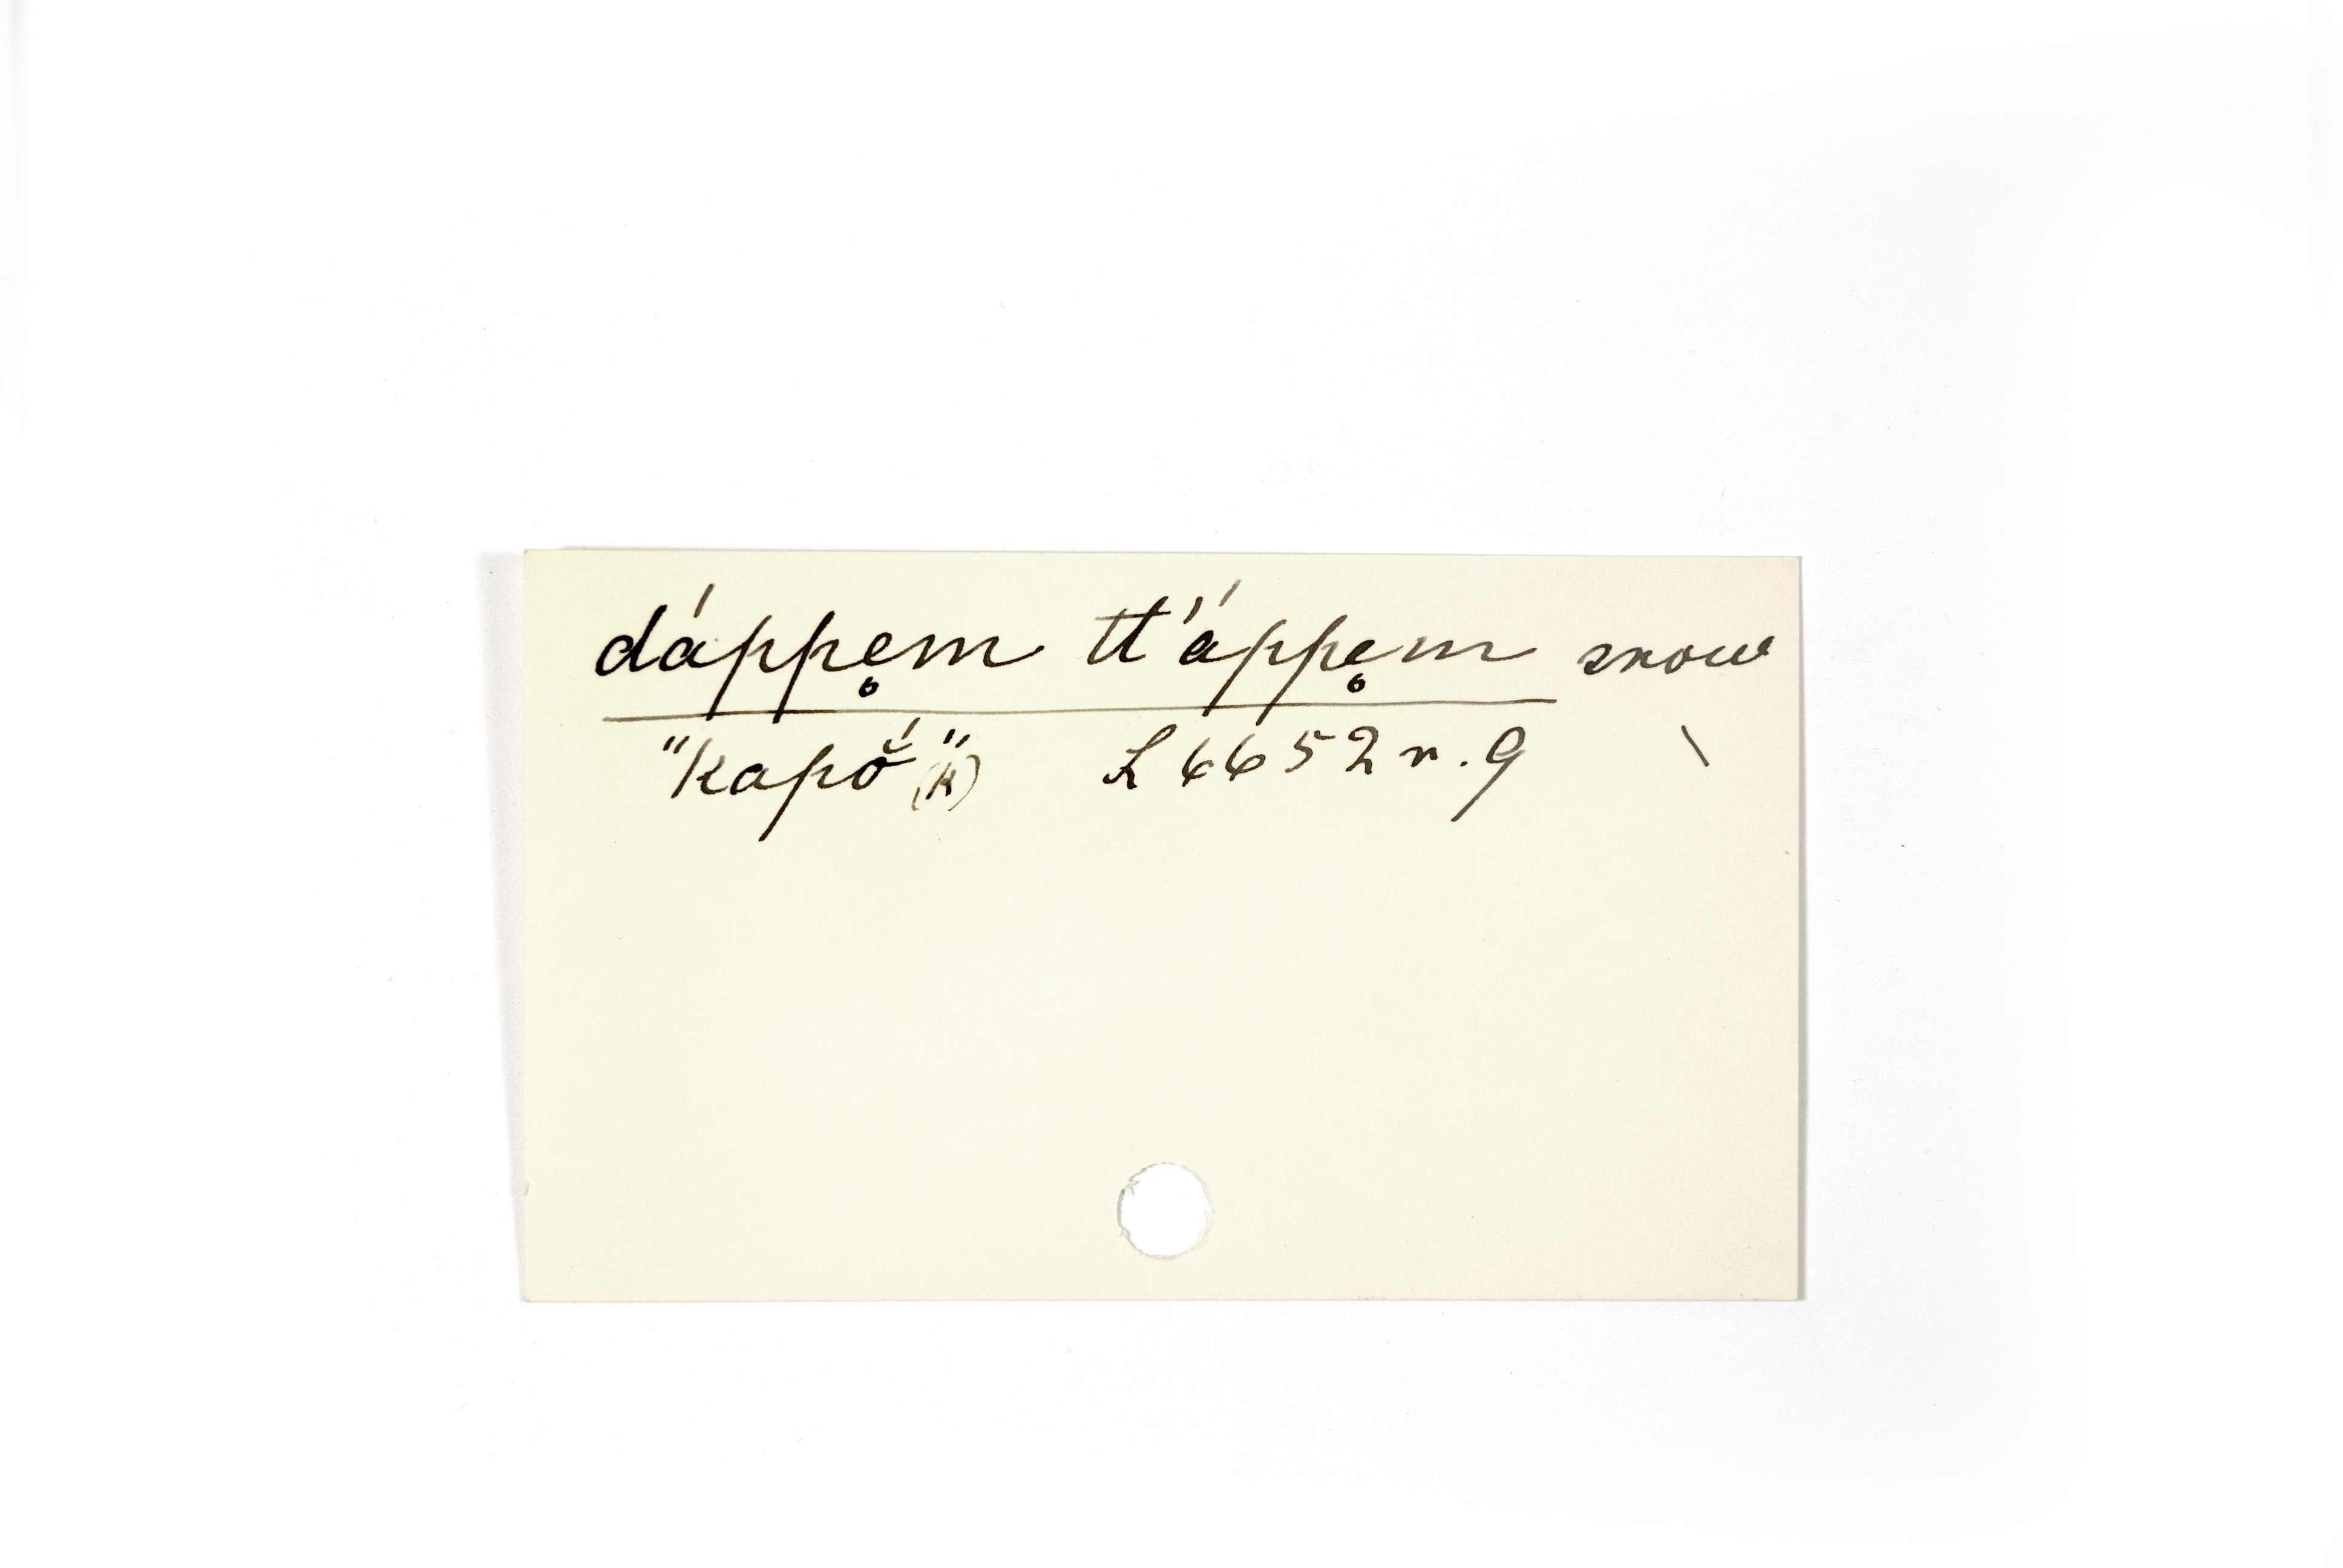 dáppe̥m tt'áppe̥m snow
"kapŏ́" (k) L 6652 r. 9 \